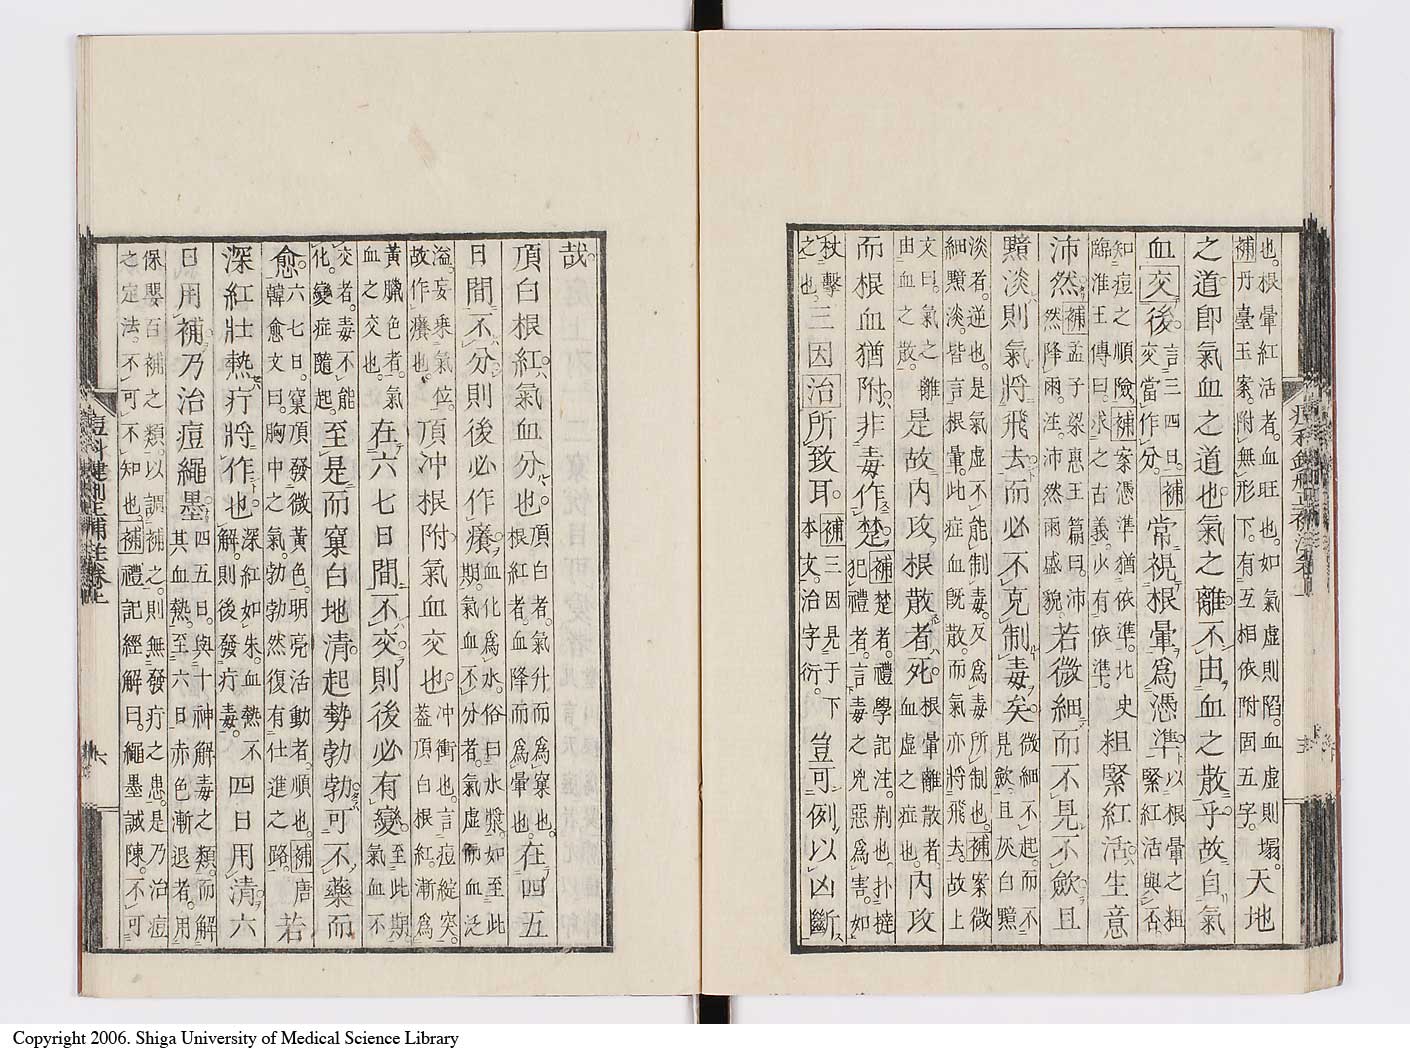 也。根暈紅活者。血旺也。如氣虛則陷。血虛則塌。天地
補丹臺玉案。附無形下。有互相依附固五字。
之道。卽氣血之道也。氣之離不由血之散乎。故自氣
血交後。言三四日。補常視根暈爲憑準。以根暈之粗
交當作分。緊紅活與否
知痘之順險。補案憑準猶依準。北史
臨淮王傳曰。求之古義。必有依準。粗緊紅活生意
沛然補孟子梁惠王篇曰。沛
然降雨。注。沛然雨盛貌若微細而不見不歛且
黯淡則氣將飛去而必不克制毒矣。微細不起。而不
見歛。且灰白黯
淡者。逆也。是氣虛不能制毒。反爲毒所制也。補案微
細黯淡。皆言根暈。此症血既散。而氣亦將飛去。故上
文曰。氣之離
由血之散。是故内攻根散者死。根暈離散者
血虛之症也。内攻
而根血猶附。非毒作楚。補楚者。禮學記注。荆也。扑撻
犯禮者。言毒之兇惡爲害。如
杖擊
之也。三因治所致耳。補三因見于下
本文。治字衍。豈可例以凶斷
哉。
頂白根紅。氣血分也。頂白者。氣升而爲窠也。
根紅者。血降而爲暈也。在四五
日間不分。則後必作癢。血化爲水。俗曰水漿。如至此
期。氣血不分者。氣虛而血泛
溢。妄乘氣位。
故作癢也。頂冲根附。氣血交也。冲衝也。言痘綻突。
蓋頂白根紅。漸爲
黃臘色者。氣
血之交也。在六七日間不交。則後必有變。至此期
氣血不
交者。毒不能
化。變症隨起。至是而窠白地清。起勢勃勃。可不藥而
愈。六七日。窠頂發微黃色。明亮活動者。順也。補唐
韓愈文曰。胸中之氣。勃勃然復有仕進之路。若
深紅壯熱。疔將作也。深紅如朱。血熱不
解。則後發疔毒。四日用清。六
日用補。乃治痘繩墨。四五日。與十神解毒之類。而解
其血熱。至六日。赤色漸退者。用
保嬰百補之類。以調補之。則無發疔之患。是乃治痘
之定法。不可不知也。補禮記經解曰。繩墨誠陳。不可
痘科鍵訂正補注卷上
六